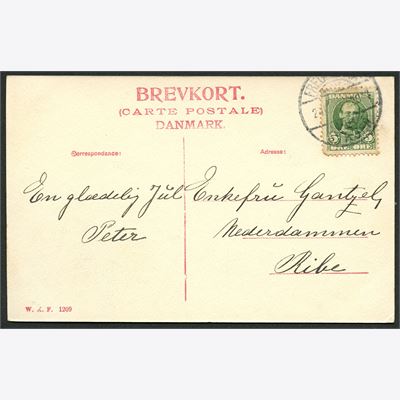 BREVKORT.
(CARTE POSTALE)
DANMARK.
Correspondance:
Adresse:
En glædelig Jul
Peter
Enkefru Gantzel,
Nederdammen
Ribe
DANMARK
5 5
W. & F. 1209